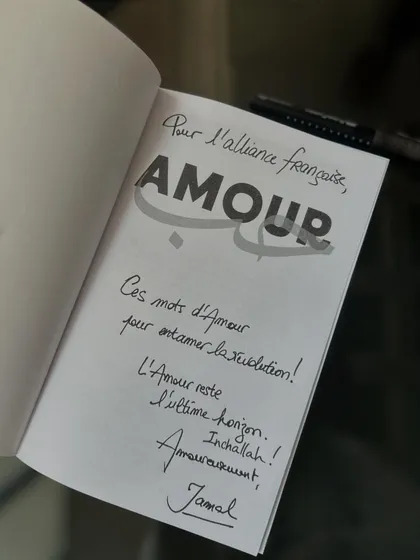 Pour l'alliance française,
AMOUR
حب
Ces mots d'Amour
pour entamer la révolution !
L'Amour reste
l'ultime horizon.
Inchallah !
Amoureusement,
Jamal